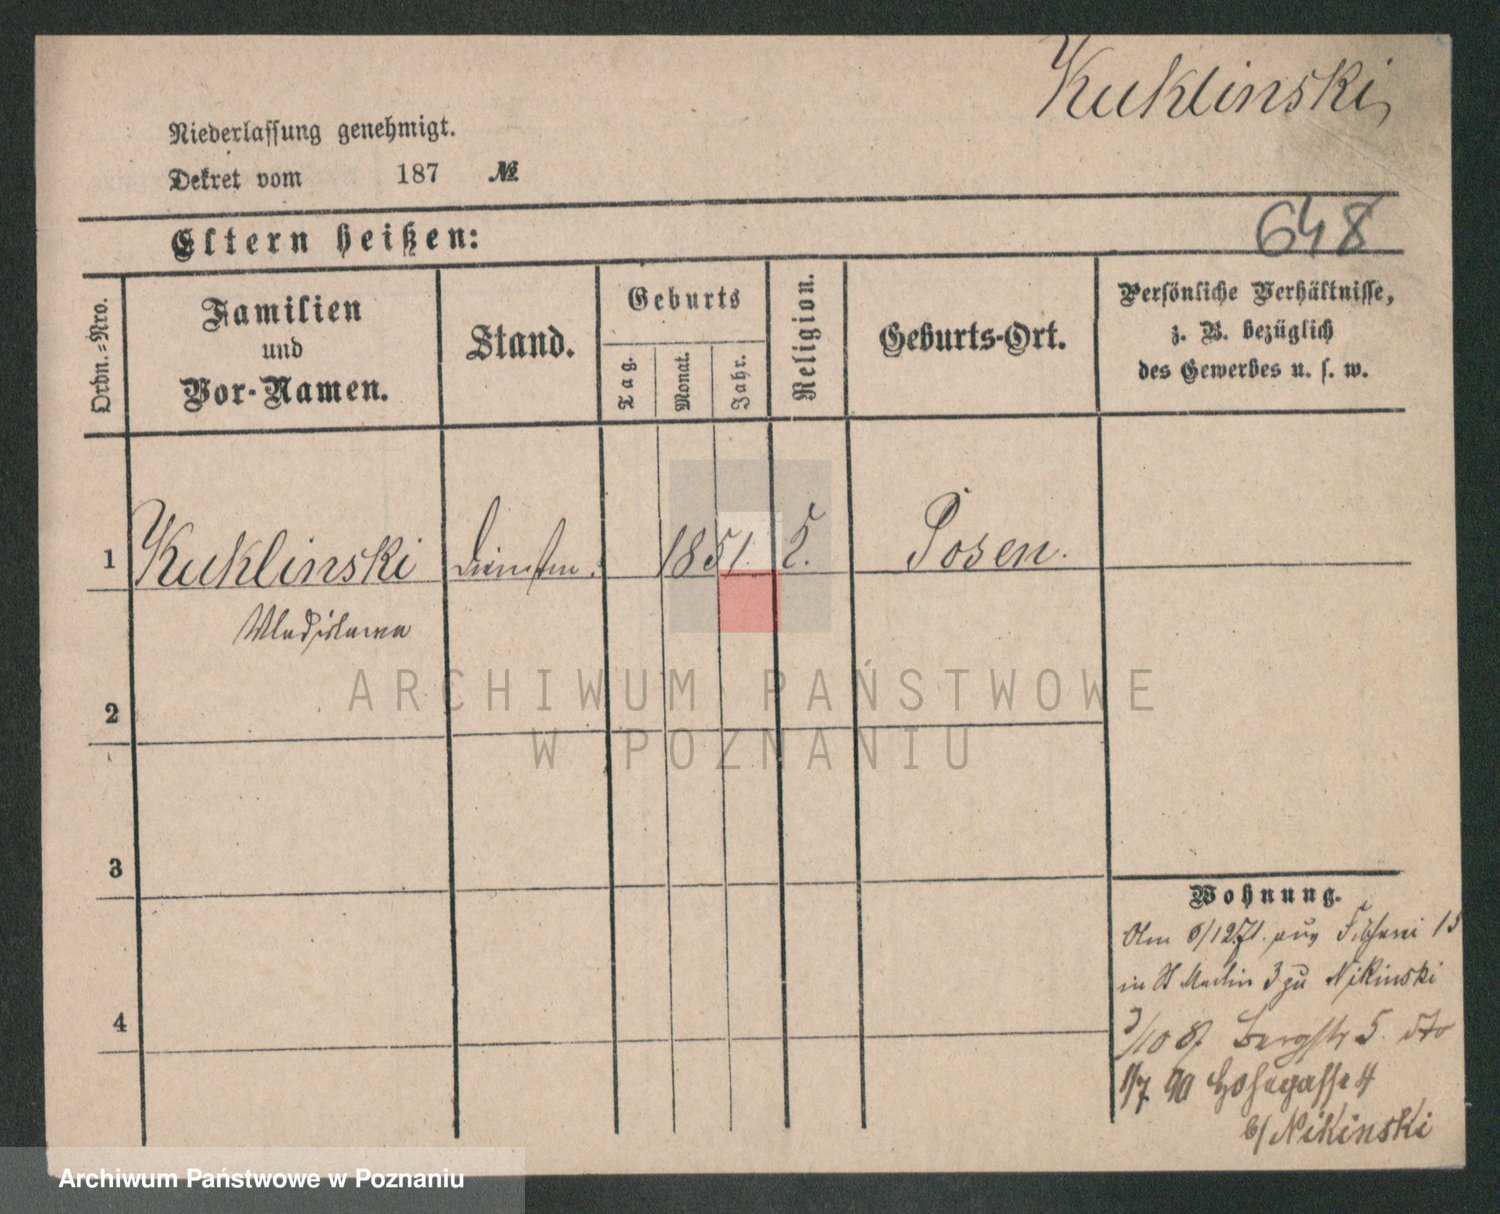 Kuklinski
Niederlassung genehmigt.
Dekret vom 187 №
648
Eltern heißen:
Ordn.-Nro.
Familien
und
Vor-Namen.
Stand.
Geburts
Tag.
Monat.
Jahr.
Religion.
Geburts-Ort.
Persönliche Verhältnisse,
z. B. bezüglich
des Gewerbes u. s. w.
1 Kuklinski 1851. Posen.
Wladislawa
2
ARCHIWUM PAŃSTWOWE
W POZNANIU
3
Wohnung.
aus 15
in St Martin 3 zu Nikinski
4
3/10 87 Bergstr 5. dto
1/7 90 Hohegasse 4
b/ Nikinski
Archiwum Państwowe w Poznaniu